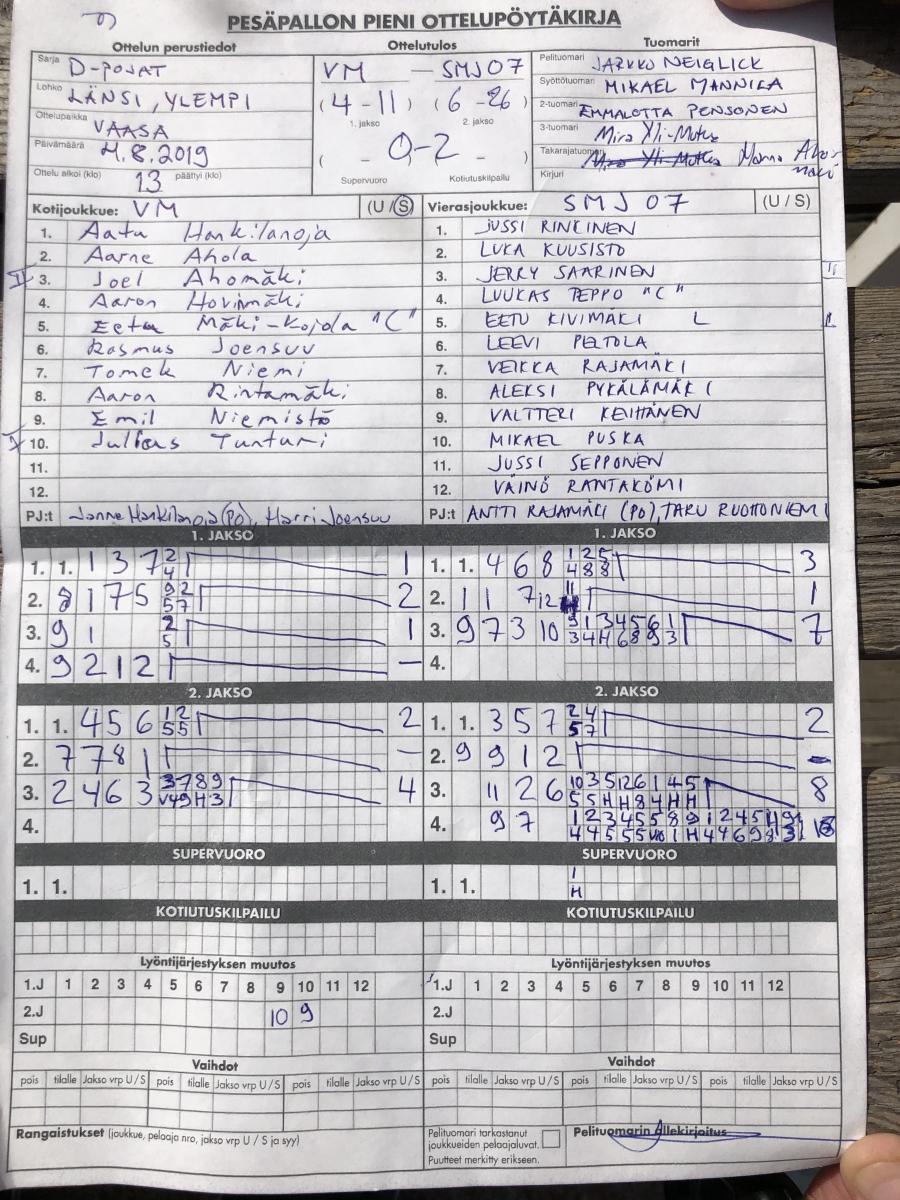 PESÄPALLON PIENI OTTELUPÖYTÄKIRJA
Ottelun perustiedot Ottelutulos Tuomarit
Sarja D-POJAT
Lohko LÄNSI, YLEMPI
Ottelupaikka VAASA
Päivämäärä 4.8.2019
Ottelu alkoi (klo) 13 päättyi (klo)
VM — SMJ07
(4-11) (6-26)
1. jakso 2. jakso
( - 0-2 - )
Supervuoro Kotiutuskilpailu
Pelituomari JARKKO NEIGLICK
Syöttötuomari MIKAEL MANNILA
2-tuomari EMMALOTTA PENSONEN
3-tuomari Mira Yli-Mutus
Takarajatuomari
Kirjuri
Kotijoukkue: VM (U / S) Vierasjoukkue: SMJ 07 (U / S)
1. Aatu Hankilanoja 1. JUSSI RINKINEN
2. Aarne Ahola 2. LUKA KUUSISTO
II 3. Joel Ahomäki 3. JERRY SAARINEN II
4. Aaron Hovinmäki 4. LUUKAS TEPPO "C"
5. Eetu Mäki-Kojola "C" 5. EETU KIVIMÄKI L
6. Rasmus Joensuu 6. LEEVI PELTOLA
7. Tomek Niemi 7. VEIKKA RAJAMÄKI
8. Aaron Rintamäki 8. ALEKSI PYKÄLÄMÄKI
9. Emil Niemistö 9. VALTTERI KEIHÄNEN
I 10. Julius Tunturi 10. MIKAEL PUSKA
11. 11. JUSSI SEPPONEN
12. 12. VÄINÖ RANTAKÖMI
PJ:t Janne Hankilanoja (PO), Harri Joensuu PJ:t ANTTI RAJAMÄKI (PO), TARU RUOHONIEMI
1. JAKSO 1. JAKSO
1. 1. 1 3 7 2 4 1 1. 1. 4 6 8 1 2 5 4 8 8 3
2. 8 1 7 5 9 2 5 7 2 2. 1 1 7 12 11 1
3. 9 1 2 5 1 3. 9 7 3 10 9 1 3 4 5 6 1 3 4 H 6 8 9 3 7
4. 9 2 1 2 — 4.
2. JAKSO 2. JAKSO
1. 1. 4 5 6 1 2 5 5 2 1. 1. 3 5 7 2 4 5 7 2
2. 7 7 8 1 — 2. 9 9 1 2 —
3. 2 4 6 3 3 7 8 9 4 3. 11 2 6 8
4. 4. 9 7
SUPERVUORO SUPERVUORO
1. 1. 1. 1. 1 H
KOTIUTUSKILPAILU KOTIUTUSKILPAILU
Lyöntijärjestyksen muutos Lyöntijärjestyksen muutos
1.J 1 2 3 4 5 6 7 8 9 10 11 12 1.J 1 2 3 4 5 6 7 8 9 10 11 12
2.J 10 9 2.J
Sup Sup
Vaihdot Vaihdot
pois tilalle Jakso vrp U / S pois tilalle Jakso vrp U / S pois tilalle Jakso vrp U / S pois tilalle Jakso vrp U / S pois tilalle Jakso vrp U / S pois tilalle Jakso vrp U / S
Rangaistukset (joukkue, pelaaja nro, jakso vrp U / S ja syy)
Pelituomari tarkastanut
joukkueiden pelaajaluvat.
Puutteet merkitty erikseen.
Pelituomarin allekirjoitus